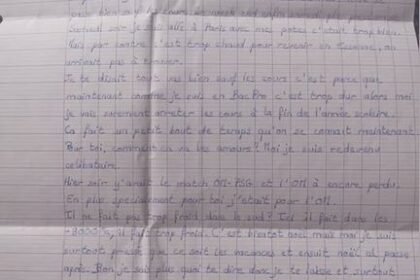 tout bien
Samedi soir je suis allé à Paris avec mes potes c'était trop bien.
Mais par contre c'est trop chaud pour revenir en , on
arrivait pas à trouver.
Je te disait tout va bien sauf les cours c'est parce que
maintenant comme je suis en Bac Pro c'est trop dur alors moi
je vais surement arreter les cours à la fin de l'année scolaire.
Ca fait un petit bout de temps qu'on se connait maintenant.
Pour toi, comment va les amours? Moi je suis redevenu
célibataire.
Hier soir y'avait le match OM-PSG et l'OM à encore perdu.
En plus spécialement pour toi j'était pour l'OM.
Il ne fait pas trop froid dans le sud? Ici il fait dans les
-3000°C, il fait trop froid. C'est bientot noel mais moi je suis
surtout pressé que ce soit les vacances et ensuite noël et
après. Bon je sais plus quoi te dire donc je te laisse et surtout